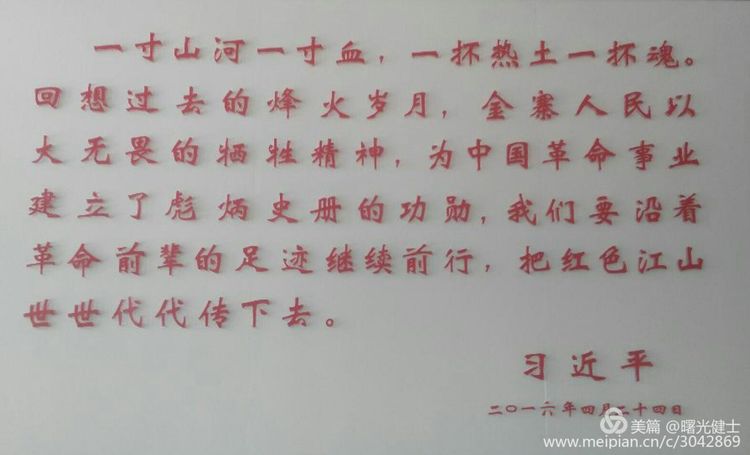 一寸山河一寸血，一抔热土一抔魂。
回想过去的烽火岁月，金寨人民以
大无畏的牺牲精神，为中国革命事业
建立了彪炳史册的功勋，我们要沿着
革命前辈的足迹继续前行，把红色江山
世世代代传下去。
习近平
二〇一六年四月二十四日
美篇 @曙光健士
www.meipian.cn/c/3042869